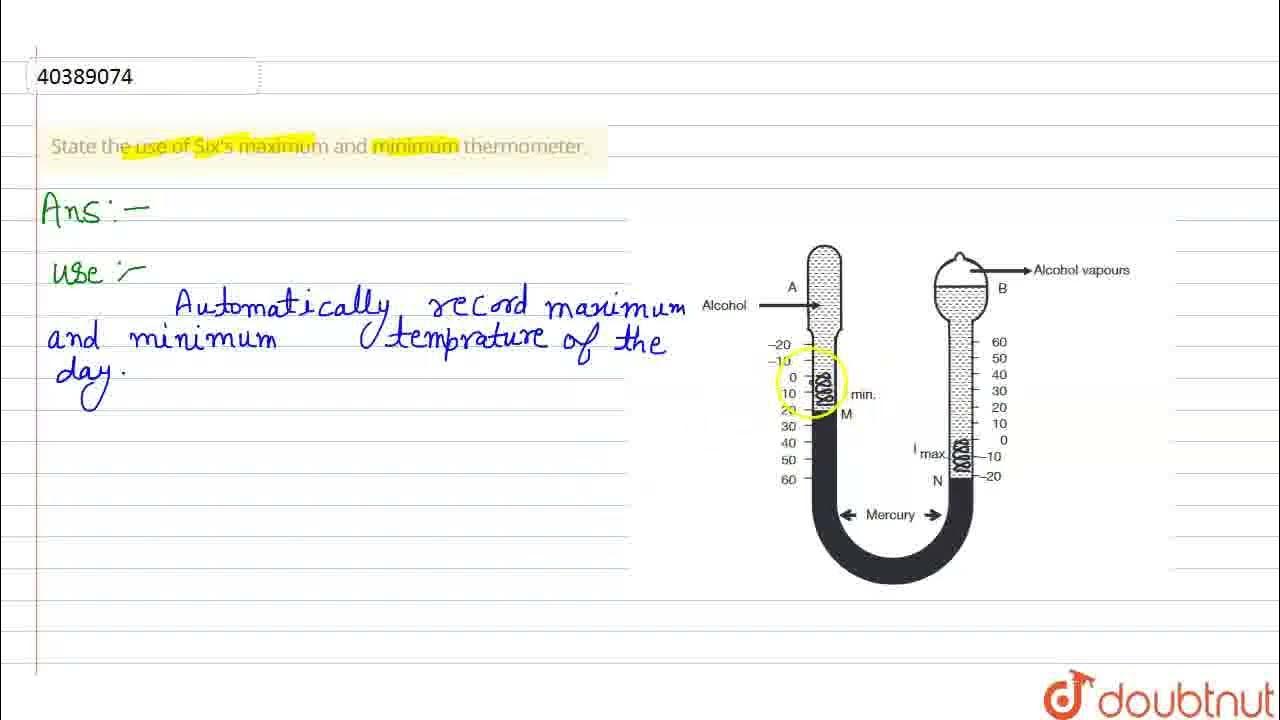 40389074
State the use of Six's maximum and minimum thermometer.
Ans:-
use:-
Automatically record maximum
and minimum temprature of the
day.
Alcohol vapours
A
B
Alcohol
-20
-10
0
10
20
30
40
50
60
min.
M
60
50
40
30
20
10
0
-10
-20
I max.
N
Mercury
doubtnut